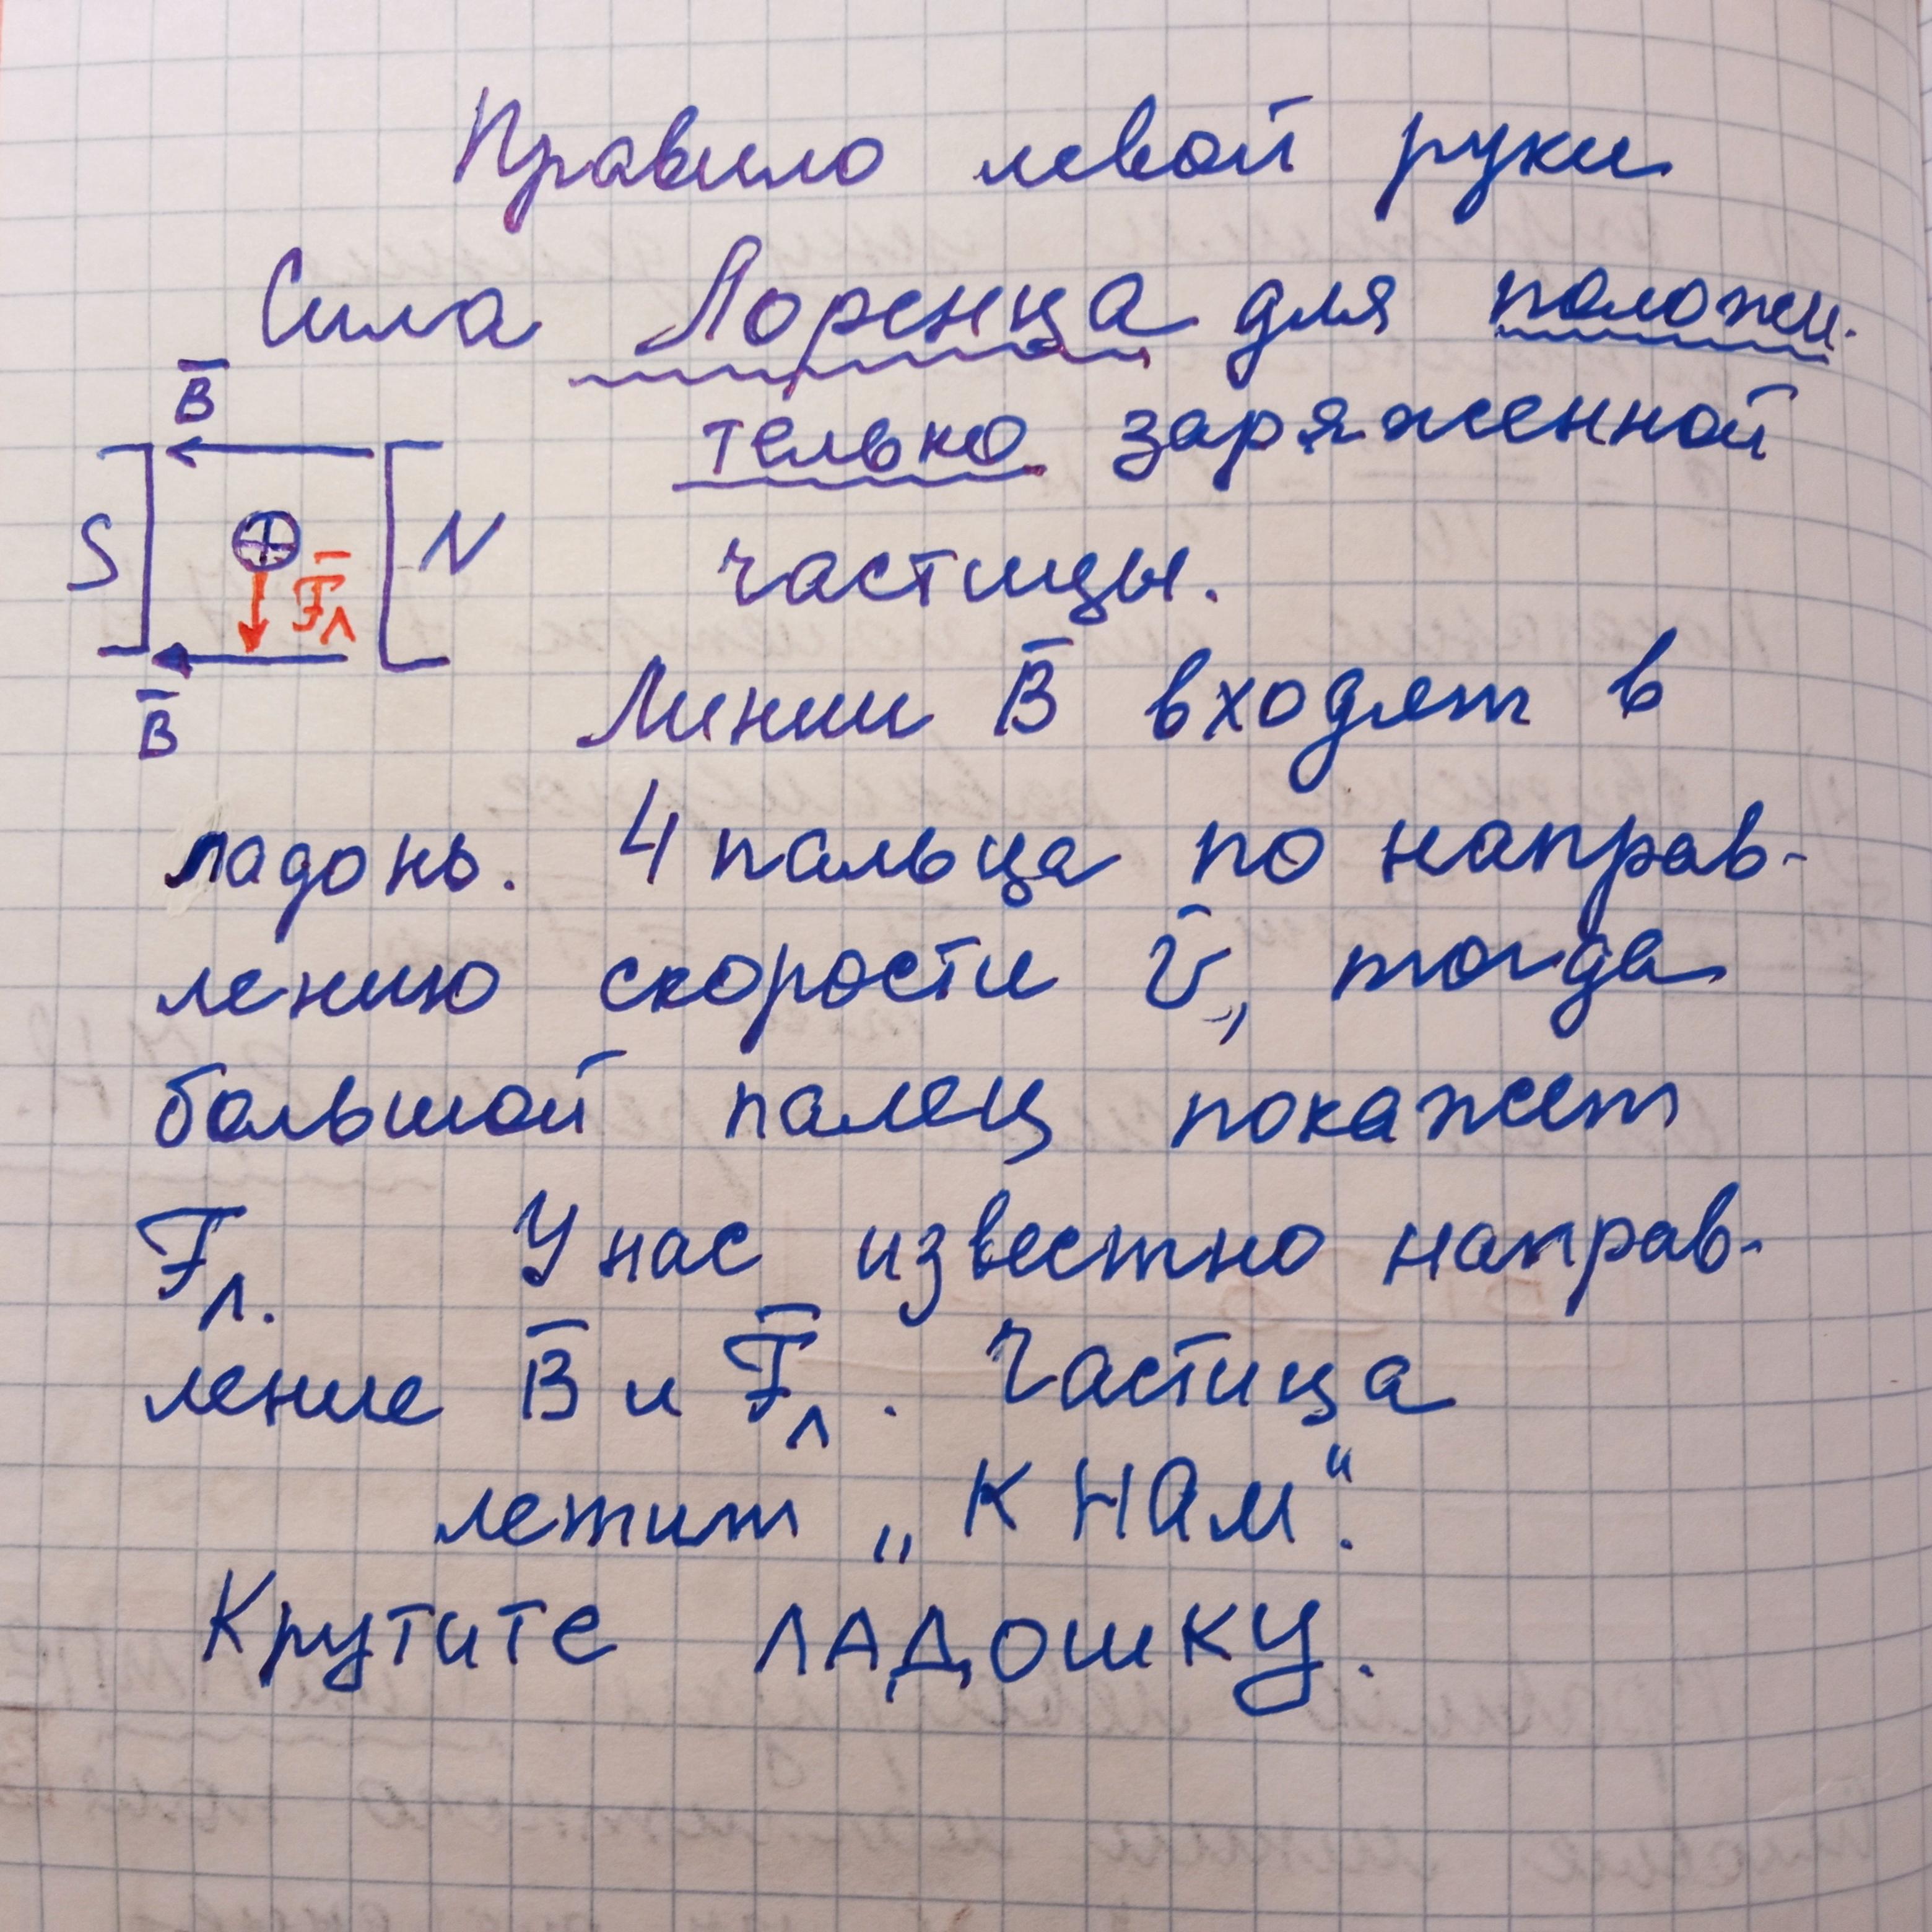 Правило левой руки
Сила Лоренца для положи-
тельно заряженной
частицы.
B̅
S
N
F̅л
B̅
Линии B̅ входят в
ладонь. 4 пальца по направ-
лению скорости v̅, тогда
большой палец покажет
Fл. У нас известно направ-
ление B̅ и F̅л. Частица
летит „К НАМ“.
Крутите ЛАДОШКУ.